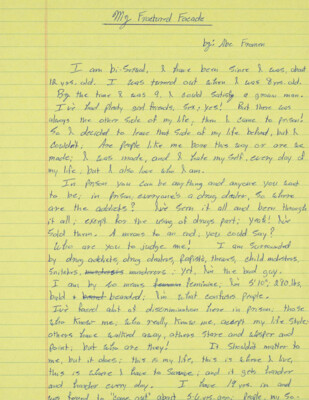 My Fractured Facade
by: Abe Freeman
I am bi-sexual, I have been since I was about
12 yrs. old. I was turned out when I was 8 yrs. old.
By the time I was 9, I could satisfy a grown man.
I've had plenty girl friends, Sex; yes! But there was
always the other side of my life, than I came to prison!
So I decided to leave that side of my life behind, but I
couldn't. Are people like me born this way or are we
made; I was made, and I hate my self, every day of
my life, but I also love who I am.
In prison you can be anything and anyone you want
to be, in prison, everyone's a drug dealer, So where
are the addicts? I've seen it all and been through
it all; except for the using of drugs part; yeah! I've
sold them. A means to an end, you could say?
Who are you to judge me! I am surrounded
by drug addicts, drug dealers, rapists, theives, child molesters,
snitches, murderers; yet, I'm the bad guy.
I am by no means feminine; I'm 5'10", 230 lbs,
bald & bearded; I'm what confuses people.
I've faced alot of discrimination here in prison; those
who knew me; who really knows me, accept my life style;
others have walked away, others stare and whisper and
point; but who are they! It shouldn't matter to
me, but it does; this is my life, this is where I live,
this is where I have to survive; and it gets harder
and harder every day. I have 19 yrs. in and
was forced to "come out" about 5½ yrs. ago; people, my so-